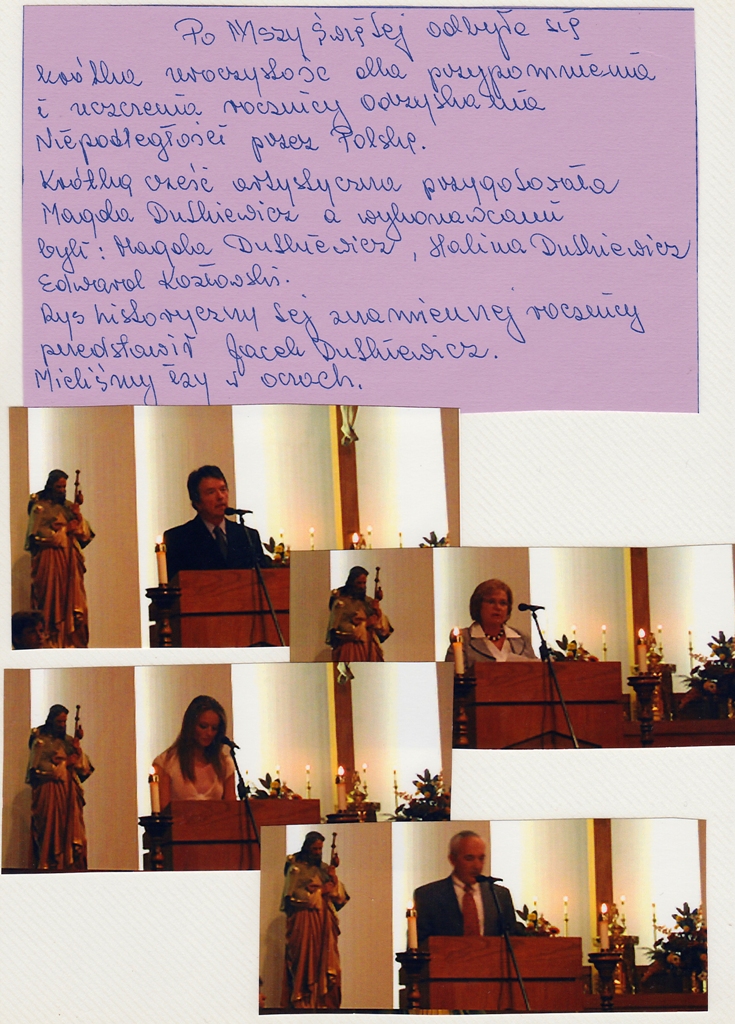 Po Mszy Świętej odbyła się
krótka uroczystość dla przypomnienia
i uczczenia rocznicy odzyskania
Niepodległości przez Polskę.
Krótką cześć artystyczna przygotowała
Magda Dutkiewicz a wykonawcami
byli: Magda Dutkiewicz, Halina Dutkiewicz
Edward Kozłowski.
Rys historyczny tej znamiennej rocznicy
przedstawił Jacek Dutkiewicz.
Mieliśmy łzy w oczach.